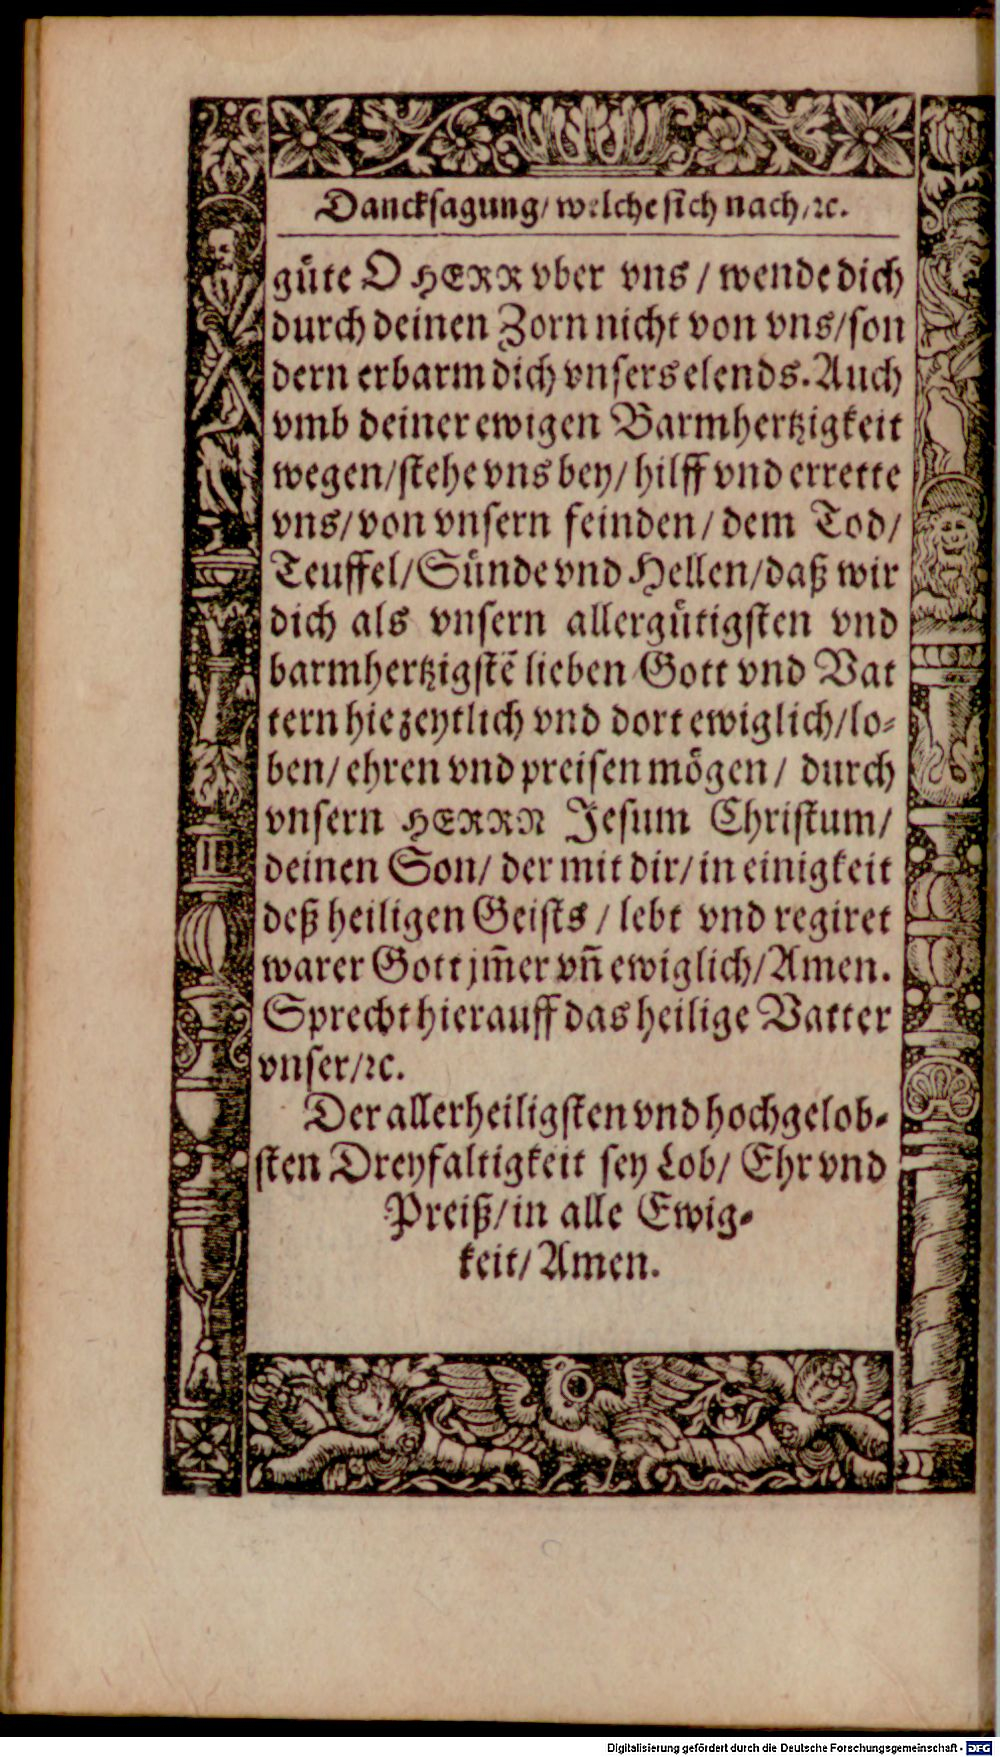 Dancksagung/ welche sich nach/ ꝛc.
guͤte O HERR vber vns / wende dich
durch deinen Zorn nicht von vns/ son
dern erbarm dich vnsers elends. Auch
vmb deiner ewigen Barmhertzigkeit
wegen/ stehe vns bey/ hilff vnd errette
vns/ von vnsern feinden/ dem Tod/
Teuffel/ Suͤnde vnd Hellen/ daß wir
dich als vnsern allerguͤtigsten vnd
barmhertzigstẽ lieben Gott vnd Vat
tern hie zeytlich vnd dort ewiglich/ lo-
ben/ ehren vnd preisen moͤgen/ durch
vnsern HERRN Jesum Christum/
deinen Son/ der mit dir/ in einigkeit
deß heiligen Geists / lebt vnd regiret
warer Gott jm̃er vñ ewiglich/ Amen.
Sprecht hierauff das heilige Vatter
vnser/ ꝛc.
Der allerheiligsten vnd hochgelob-
sten Dreyfaltigkeit sey Lob/ Ehr vnd
Preiß/ in alle Ewig-
keit/ Amen.
Digitalisierung gefördert durch die Deutsche Forschungsgemeinschaft - DFG